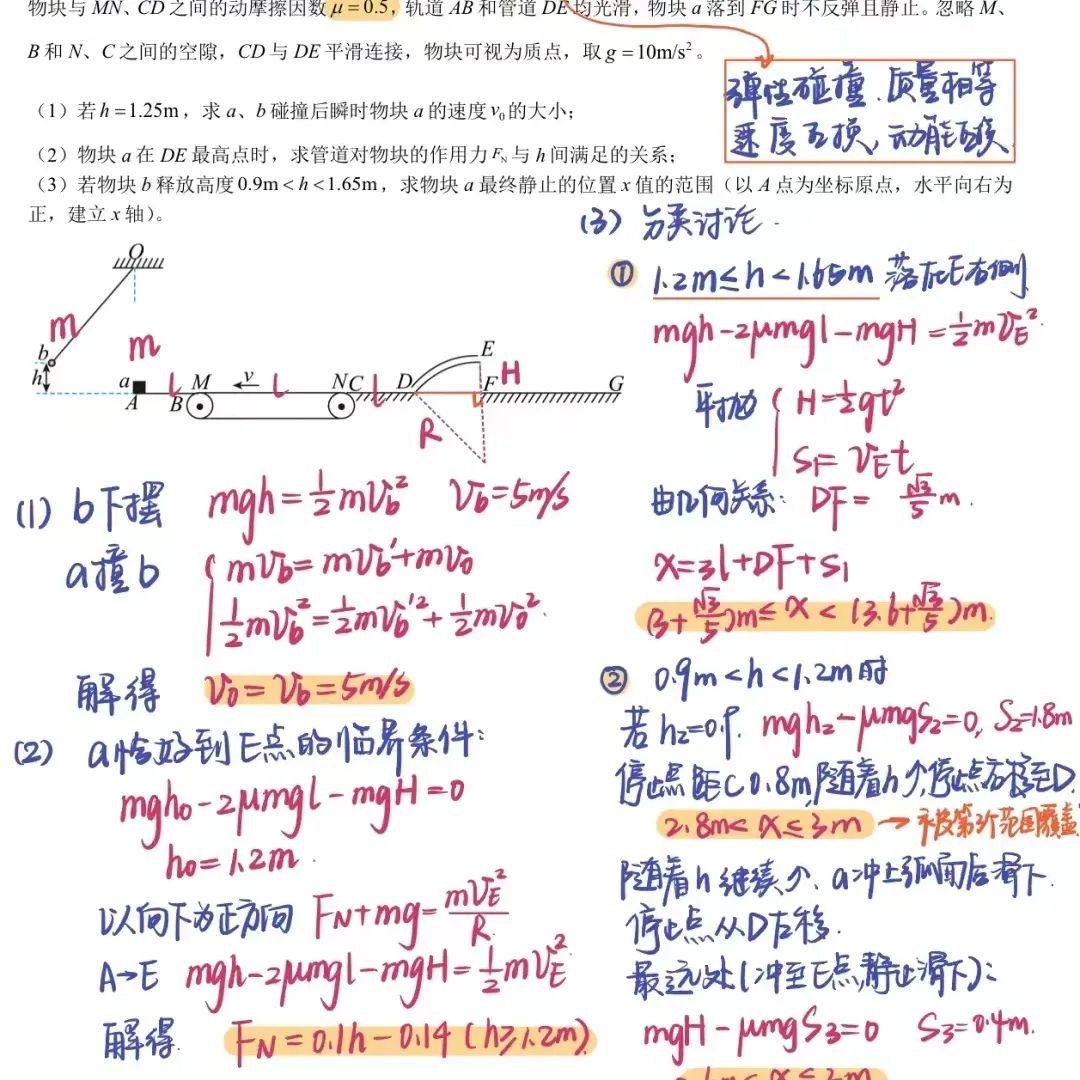 物块与 MN、CD 之间的动摩擦因数 μ = 0.5，轨道 AB 和管道 DE 均光滑，物块 a 落到 FG 时不反弹且静止。忽略 M、
B 和 N、C 之间的空隙，CD 与 DE 平滑连接，物块可视为质点，取 g = 10m/s²。
弹性碰撞.质量相等
速度互换,动能互换
（1）若 h = 1.25m，求 a、b 碰撞后瞬时物块 a 的速度 v₀ 的大小；
（2）物块 a 在 DE 最高点时，求管道对物块的作用力 F_N 与 h 间满足的关系；
（3）若物块 b 释放高度 0.9m < h < 1.65m，求物块 a 最终静止的位置 x 值的范围（以 A 点为坐标原点，水平向右为
正，建立 x 轴）。
O
m
b
h
m
a
A
l
B
M
v
l
N
C
l
D
E
H
F
G
R
(1) b下摆 mgh = ½mv_b² v_b = 5m/s
a撞b
mv_b = mv_b' + mv₀
½mv_b² = ½mv_b'² + ½mv₀²
解得 v₀ = v_b = 5m/s
(2) a恰好到E点的临界条件:
mgh₀ - 2μmgl - mgH = 0
h₀ = 1.2m.
以向下为正方向 F_N + mg = mv_E²/R
A→E mgh - 2μmgl - mgH = ½mv_E²
解得. F_N = 0.1h - 0.14 (h≥1.2m)
(3) 分类讨论.
① 1.2m ≤ h < 1.65m 落在E右侧
mgh - 2μmgl - mgH = ½mv_E².
平抛
H = ½gt²
S₁ = v_E t
由几何关系: DF = √3/5 m.
x = 3l + DF + S₁
(3 + √3/5)m ≤ x < (3.6 + √3/5)m.
② 0.9m < h < 1.2m时
若h₂=0.9. mgh₂ - μmgS₂ = 0, S₂=1.8m
停止点距C 0.8m,随着h↑,停止点右移至D.
2.8m < x ≤ 3m → 被第3个范围覆盖
随着h继续↑、a冲上弧面后滑下.
停止点从D左移.
最远处(冲至E点,静止滑下):
mgH - μmgS₃ = 0 S₃ = 0.4m.